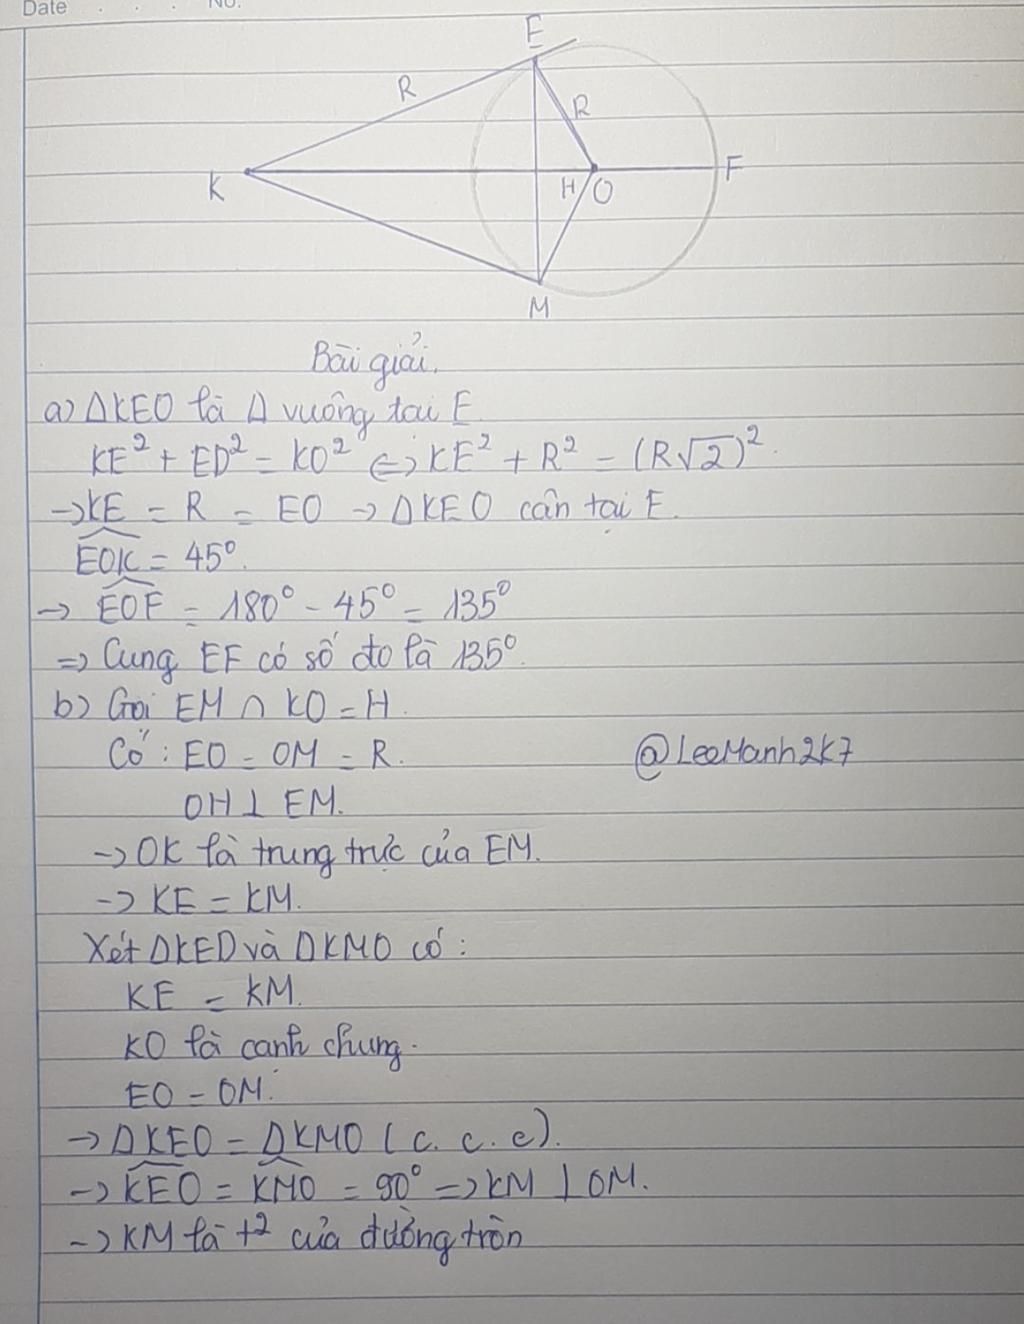 Date . . . No.
E
R
R
K
H
O
F
M
Bài giải.
a) ΔKEO là Δ vuông tại E
KE² + EO² = KO² ⇔ KE² + R² = (R√2)².
→ KE = R = EO → ΔKEO cân tại E.
EOK = 45°.
→ EOF = 180° - 45° = 135°
=> Cung EF có số đo là 135°.
b) Gọi EM ∩ KO = H.
Có : EO = OM = R.
@LeeManh2k7
OH ⊥ EM.
→ OK là trung trực của EM.
→ KE = KM.
Xét ΔKEO và ΔKMO có :
KE = KM.
KO là cạnh chung.
EO = OM.
→ ΔKEO = ΔKMO (c. c. c).
→ KEO = KMO = 90° => KM ⊥ OM.
→ KM là t² của đường tròn